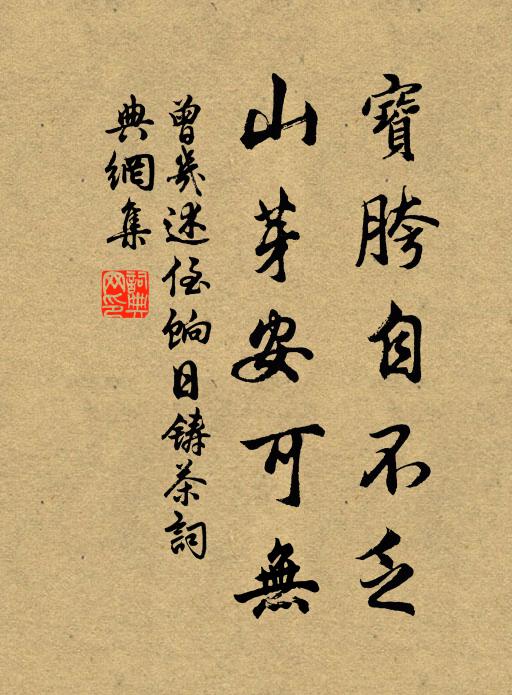 寶胯自不乏
山芽安可無
曾幾述侄餉日鑄茶詞
典網集
詞典網印